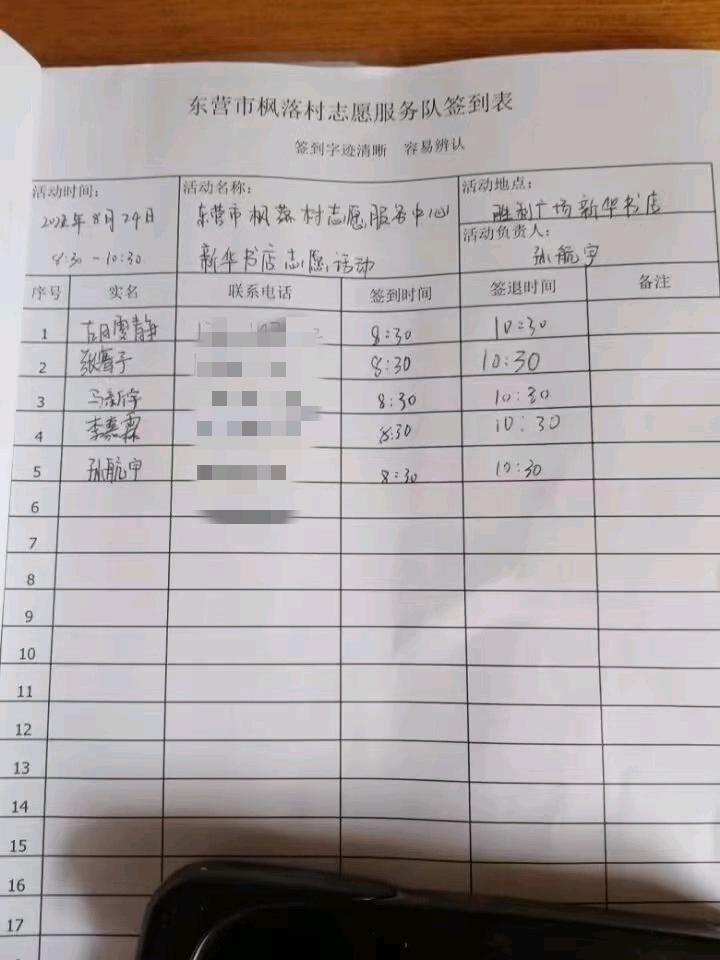 东营市枫落村志愿服务队签到表
签到字迹清晰 容易辨认
活动时间: 活动名称: 活动地点:
8月24日 东营市枫落村志愿服务中心 胜利广场新华书店
8:30-10:30 新华书店志愿活动 活动负责人:
孙航宇
序号 实名 联系电话 签到时间 签退时间 备注
1 胡雯静 8:30 10:30
2 8:30 10:30
3 马新宇 8:30 10:30
4 李嘉霖 8:30 10:30
5 孙航宇 8:30 10:30
6
7
8
9
10
11
12
13
14
15
16
17